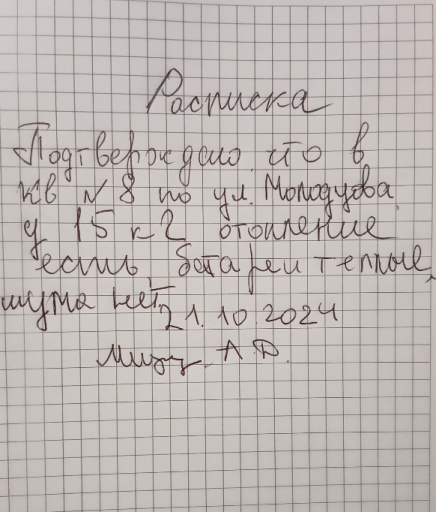 Расписка
Подтверждаю что в
кв №8 по ул.
д 15 к2 отопление
есть, батареи теплые,
шума нет
21.10.2024
А.Д.